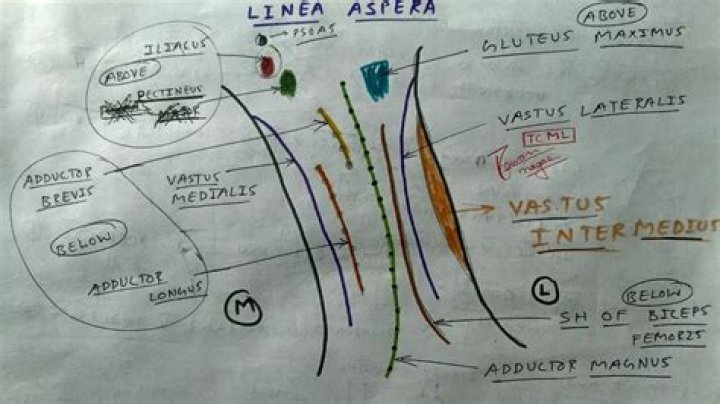 LINEA ASPERA
PSOAS
ILIACUS
ABOVE
PECTINEUS
ABOVE
GLUTEUS MAXIMUS
VASTUS LATERALIS
TCML
ADDUCTOR
BREVIS
VASTUS
MEDIALIS
BELOW
ADDUCTOR
LONGUS
M
VASTUS
INTERMEDIUS
L
BELOW
SH OF BICEPS
FEMORIS
ADDUCTOR MAGNUS